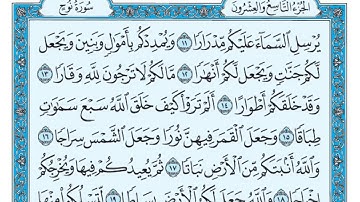 الجزء التاسع والعشرون
سورة نوح
يُرْسِلِ السَّمَاءَ عَلَيْكُم مِّدْرَارًا ١١ وَيُمْدِدْكُم بِأَمْوَالٍ وَبَنِينَ وَيَجْعَل
لَّكُمْ جَنَّاتٍ وَيَجْعَل لَّكُمْ أَنْهَارًا ١٢ مَّا لَكُمْ لَا تَرْجُونَ لِلَّهِ وَقَارًا ١٣
وَقَدْ خَلَقَكُمْ أَطْوَارًا ١٤ أَلَمْ تَرَوْا كَيْفَ خَلَقَ اللَّهُ سَبْعَ سَمَاوَاتٍ
طِبَاقًا ١٥ وَجَعَلَ الْقَمَرَ فِيهِنَّ نُورًا وَجَعَلَ الشَّمْسَ سِرَاجًا ١٦
وَاللَّهُ أَنبَتَكُم مِّنَ الْأَرْضِ نَبَاتًا ١٧ ثُمَّ يُعِيدُكُمْ فِيهَا وَيُخْرِجُكُمْ
إِخْرَاجًا ١٨ وَاللَّهُ جَعَلَ لَكُمُ الْأَرْضَ بِسَاطًا ١٩ لِّتَسْلُكُوا مِنْهَا